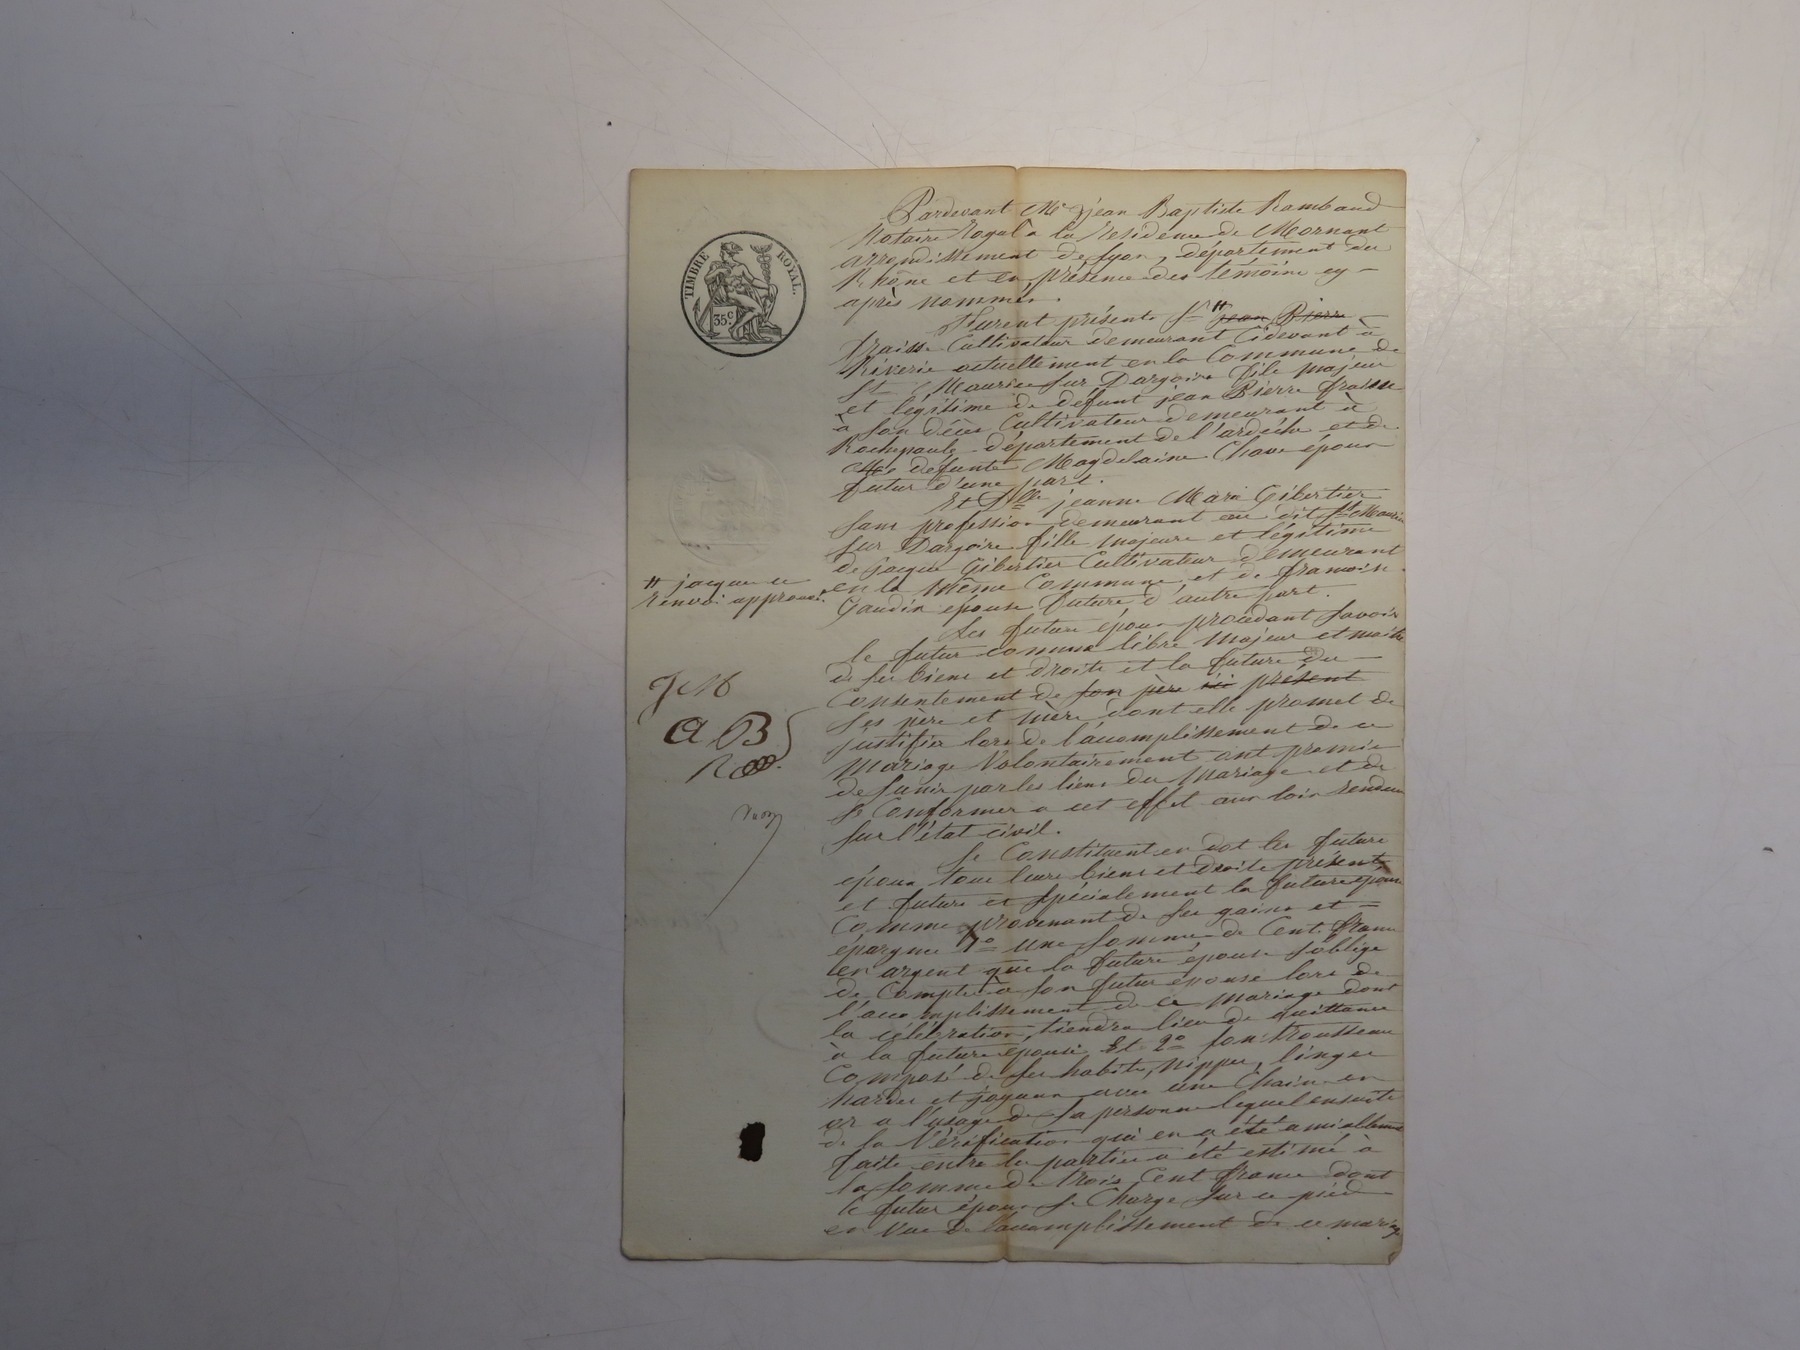 TIMBRE ROYAL.
35c.
Pardevant Me jean Baptiste Rambaud
Notaire Royal a la Résidence de Mornant
arrondissement de Lyon, département du
Rhône et en présence des témoins cy-
après nommés.
Furent présents Sr # jean Pierre
fraisse Cultivateur demeurant Cidevant à
Riverie actuellement en la Commune de
St Maurice sur Dargoire fils majeur
et légitime de défunt jean Pierre fraisse
à son décès Cultivateur demeurant à
Rochepaule département de l'ardéche et de
défunte Magdelaine Chave époux
futur d'une part.
Et Dlle jeanne Marie Gibertier
sans profession demeurant au dit St Maurice
sur Dargoire fille majeure et légitime
de jacque Gibertier Cultivateur demeurant
en la même Commune et de
Gaudin épouse future d'autre part.
# jacque ce
renvoi approuvé
Les futurs époux procédant Savoir
le futur comme libre majeur et maitre
de ses biens et droits et la future du
Consentement de son père ici présent
ses père et mère dont elle promet de
justifier lors de l'accomplissement de ce
mariage Volontairement ont promis
de s'unir par les liens du mariage et de
se Conformer a cet effet aux loix rendues
sur l'état civil.
A B
Se Constituent en dot les futurs
époux tous leurs biens et droits présents
et futurs et spécialement la future épouse
Comme provenant de ses gains et
épargnes 1o une somme de Cent francs
en argent que la future épouse s'oblige
de Compter à son futur épouse lors de
l'accomplissement de ce mariage dont
la célébration tiendra lieu de quittance
à la future épouse Et 2o son trousseau
Composé de ses habits, nippes, linges
hardes et joyaux avec une Chaine en
or a l'usage de sa personne lequel ensuite
de la Vérification qui en a été amiablement
faite entre les parties a été estimé à
la somme de trois Cent francs dont
le futur époux se Charge sur ce pied
en Vue de l'accomplissement de ce mariage